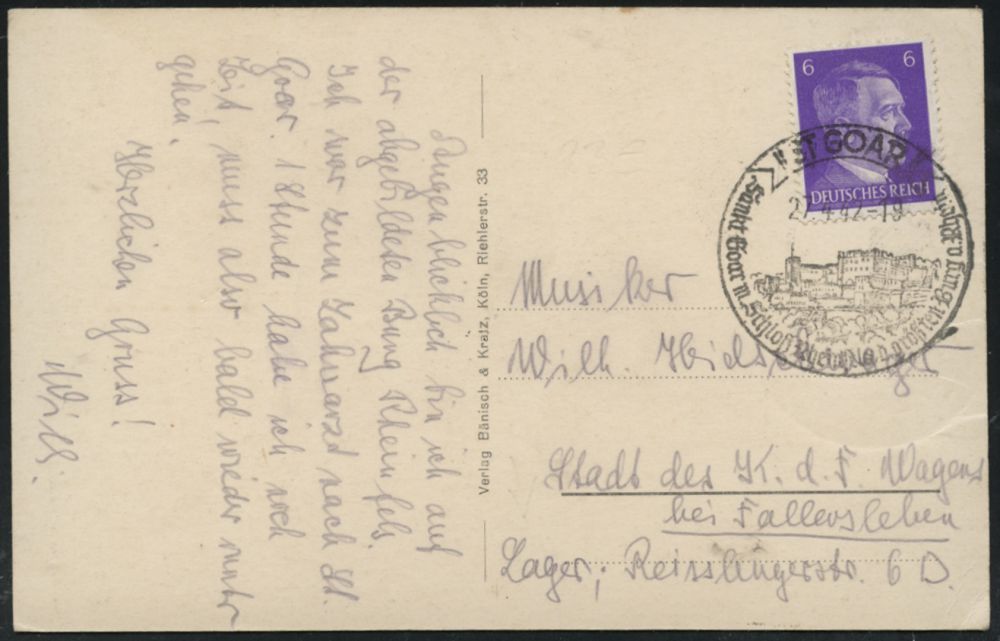 Augenblicklich bin ich auf
der abgebildeten Burg Rheinfels.
Ich war zum Zahnarzt nach St.
Goar. 1 Stunde habe ich noch
Zeit, muss also bald wieder runter
gehen.
Herzlichen Gruss!
Will.
Verlag Bänisch & Kratz, Köln, Riehlerstr. 33
6 6
DEUTSCHES REICH
ST GOAR
27.4.42-19
Sankt Goar u. Schloß Rheinfels d. größten Burg a. Rhein
Musiker
Wilh.
Stadt des K. d. F. Wagens
bei Fallersleben
Lager, Reisslingerstr. 6 D.